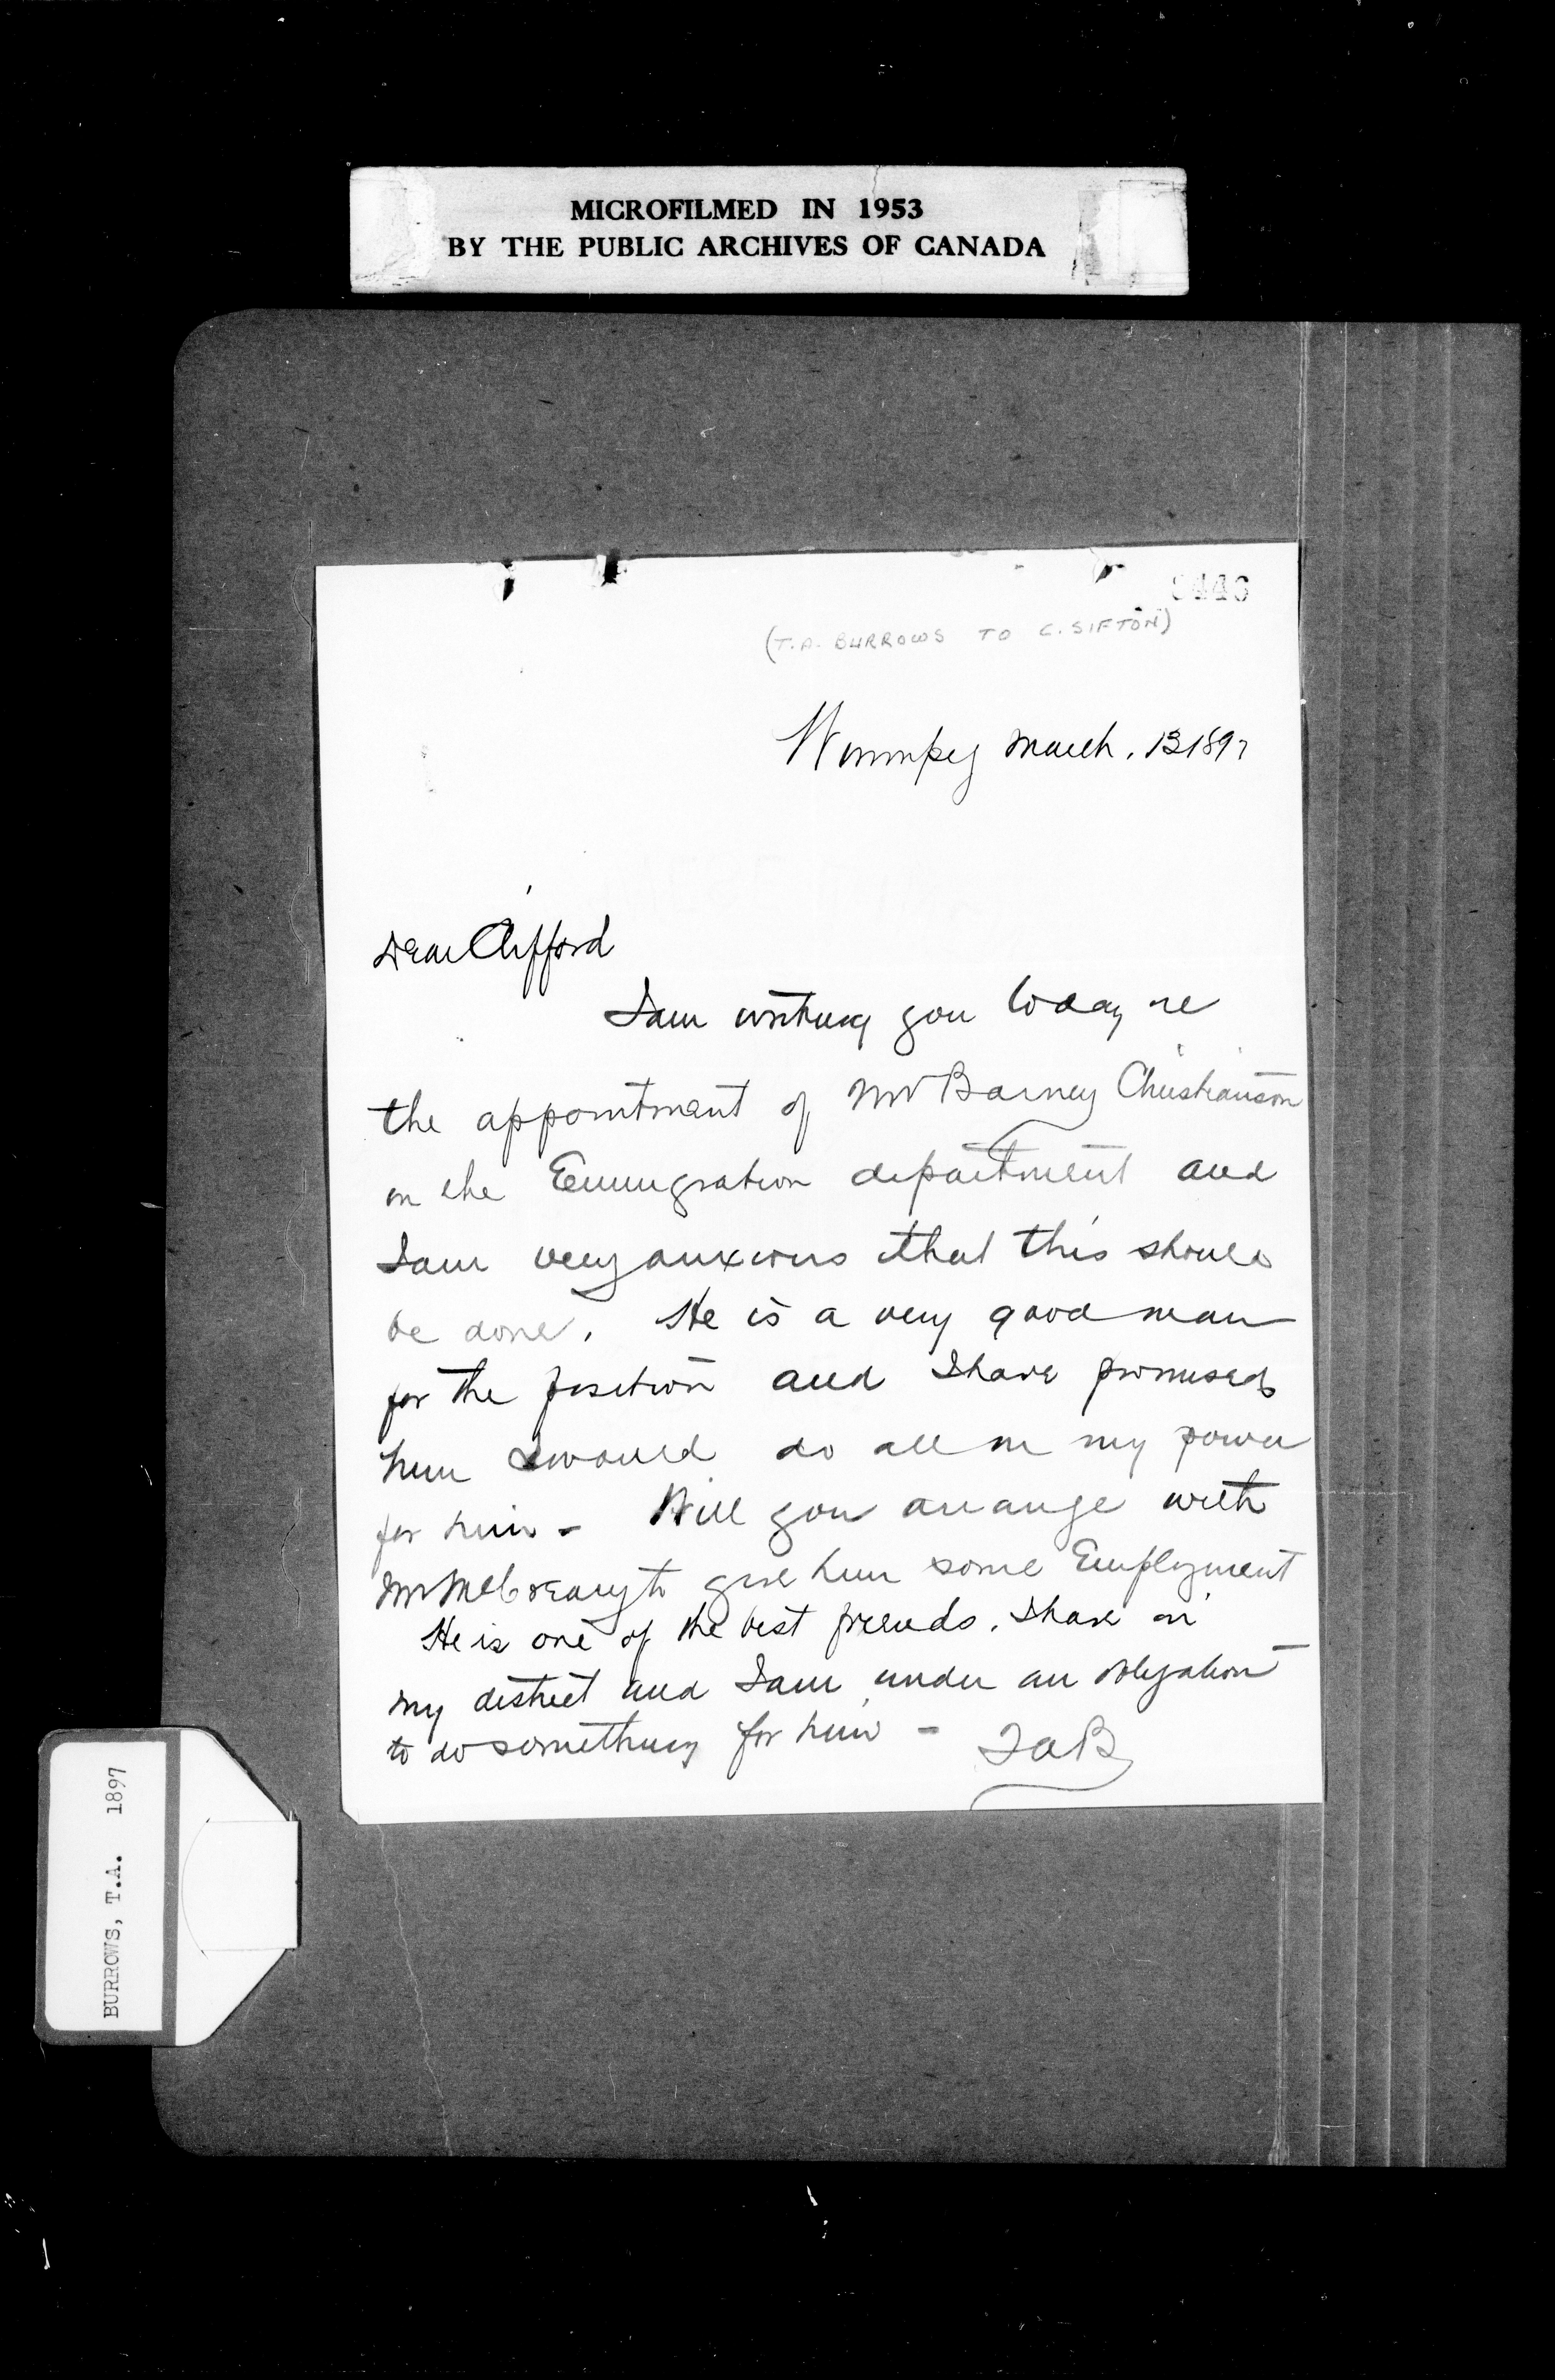 MICROFILMED IN 1953
BY THE PUBLIC ARCHIVES OF CANADA
(T.A. BURROWS TO C. SIFTON)
Winnipeg March. 13 1897
Dear Clifford
I am writing you today re
the appointment of Mr Barney Christianson
in the Emmigration department and
I am very anxious that this should
be done. He is a very good man
for the position and I have promised
him I would do all in my power
for him - Will you arrange with
Mr McCreary to give him some Employment
He is one of the best friends. I have in
my district and I am under an obligation
to do something for him - TAB
BURROWS, T.A. 1897